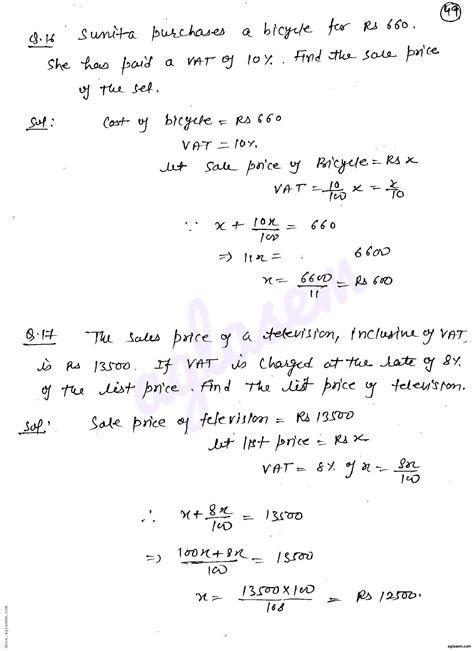 49
Q.16 Sunita purchases a bicycle for Rs 660.
She has paid a VAT of 10%. Find the sale price
of the set.
Sol: Cost of bicycle = Rs 660
VAT = 10%
let sale price of Bicycle = Rs x
VAT = 10/100 x = x/10
∵ x + 10x/100 = 660
⇒ 11x = 6600
x = 6600/11 = Rs 600
Q.17 The sales price of a television, inclusive of VAT
is Rs 13500. If VAT is charged at the rate of 8%
of the list price. Find the list price of television.
Sol: Sale price of television = Rs 13500
let list price = Rs x
VAT = 8% of x = 8x/100
∴ x + 8x/100 = 13500
⇒ 100x + 8x/100 = 13500
x = 13500 x 100/108 = Rs 12500.
aglasem
docs.aglasem.com
aglasem.com